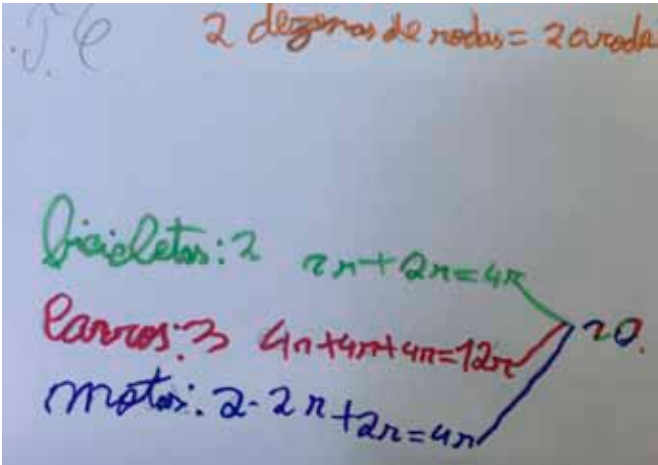 J. C
2 dezenas de rodas = 20 roda
bicicletas: 2 2r + 2r = 4r
Carros: 3 4r + 4r + 4r = 12r
motos: 2 - 2r + 2r = 4r
20.